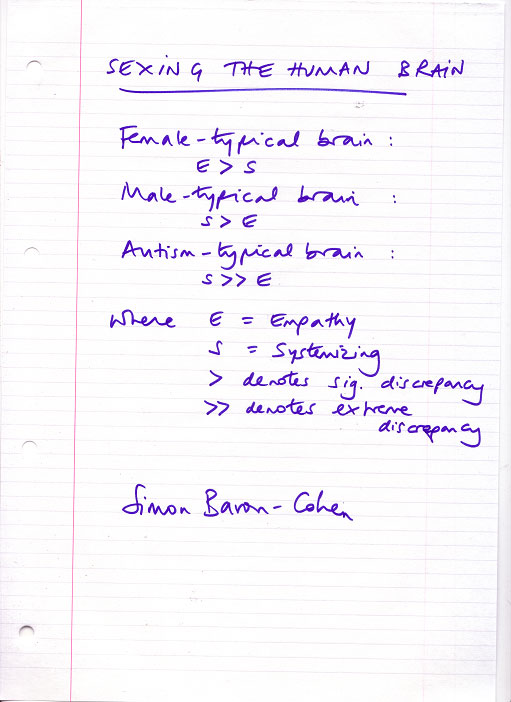 SEXING THE HUMAN BRAIN
Female-typical brain :
E > S
Male-typical brain :
S > E
Autism-typical brain :
S >> E
where E = Empathy
S = Systemizing
> denotes sig. discrepancy
>> denotes extreme
discrepancy
Simon Baron-Cohen